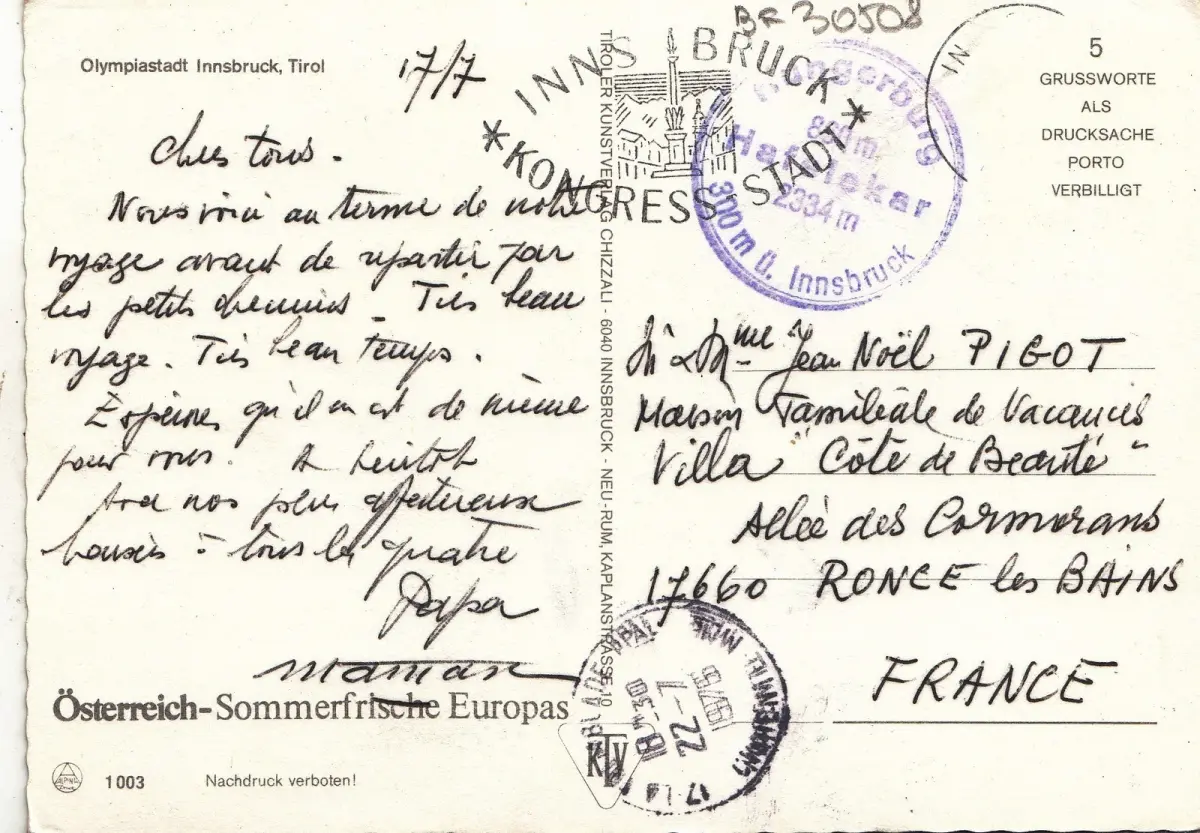 BF 30508
Olympiastadt Innsbruck, Tirol
17/7
Chers tous.
Nous voici au terme de notre
voyage avant de repartir par
les petits chemins. Très beau
voyage. Très beau temps.
Espérons qu'il en est de même
pour vous. A bientôt
Avec nos plus affectueux
baisers à tous les quatre
Papa
maman
Österreich-Sommerfrische Europas
1003
Nachdruck verboten!
TIROLER KUNSTVERLAG CHIZZALI - 6040 INNSBRUCK - NEU-RUM, KAPLANSTRASSE 10
KTV
INNSBRUCK
*KONGRESS-STADT*
Hungerburg
Hafelekar
2334 m
300 m ü. Innsbruck
IN
5
GRUSSWORTE
ALS
DRUCKSACHE
PORTO
VERBILLIGT
M & Mme Jean Noël PIGOT
Maison Familiale de Vacances
Villa "Côte de Beauté"
Allée des Cormorans
17660 RONCE les BAINS
FRANCE
18H30
22-7
1975